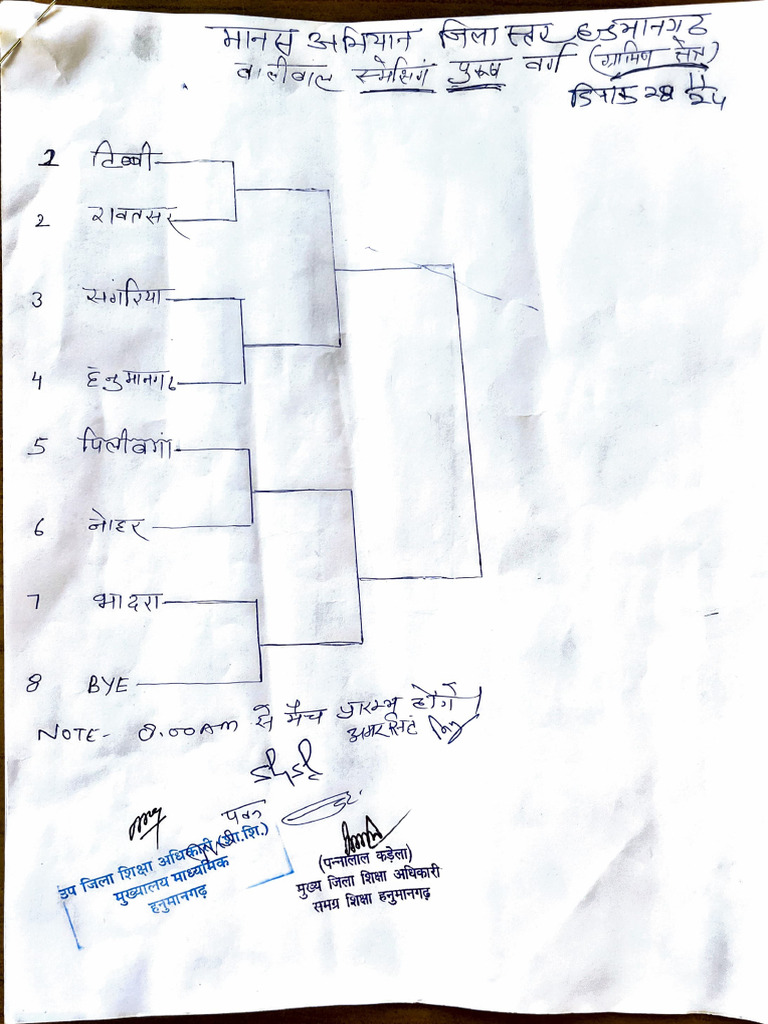 मानस अभियान जिला स्तर हनुमानगढ
वालीवाल स्मेसिगं पुरुष वर्ग (ग्रामिण क्षेत्र)
दिनांक 28
1 टिब्बी
2 रावतसर
3 संगरिया
4 हनुमानगढ
5 पिलीबगां
6 नोहर
7 भादरा
8 BYE
NOTE- 8.00AM से मैच प्रारम्भ होंगे
अमर सिंट
उप जिला शिक्षा अधिकारी (शा.शि.)
मुख्यालय माध्यमिक
हनुमानगढ़
(पन्नालाल कड़ेला)
मुख्य जिला शिक्षा अधिकारी
समग्र शिक्षा हनुमानगढ़